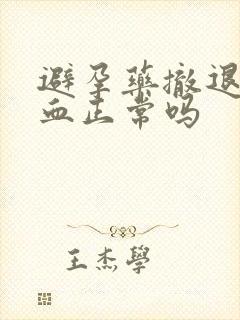 避孕藥撤退
血正常吗
王杰學